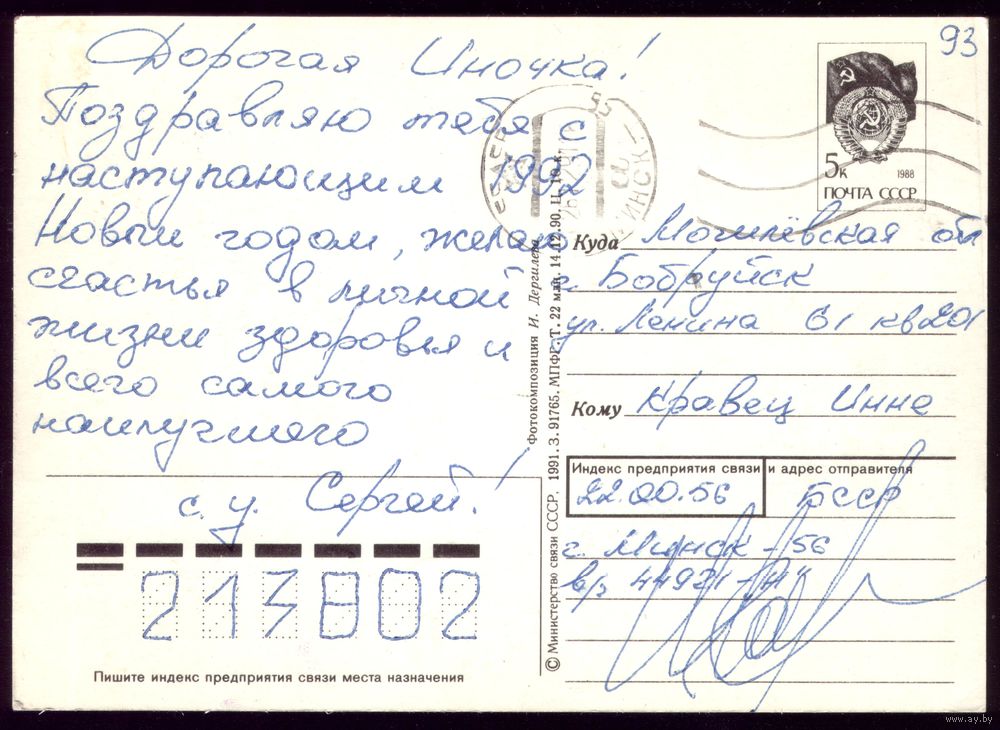 93
Дорогая Иночка!
Поздравляю тебя с
наступающим 1992
Новым годом, желаю
счастья в личной
жизни здоровья и
всего самого
наилучшего
с. у. Сергей!
213802
Пишите индекс предприятия связи места назначения
© Министерство связи СССР, 1991. З. 91765. МПФГ. Т. 22 млн. 14.12.90. Ц. 10 к.
Фотокомпозиция И. Дергилева
5к
1988
ПОЧТА СССР
Куда Могилёвская обл
г. Бобруйск
ул. Ленина 61 кв 201
Кому Кравец Инне
Индекс предприятия связи и адрес отправителя
22.00.56 БССР
г. Минск-56
в/ч 44921-"Н"
www.ay.by